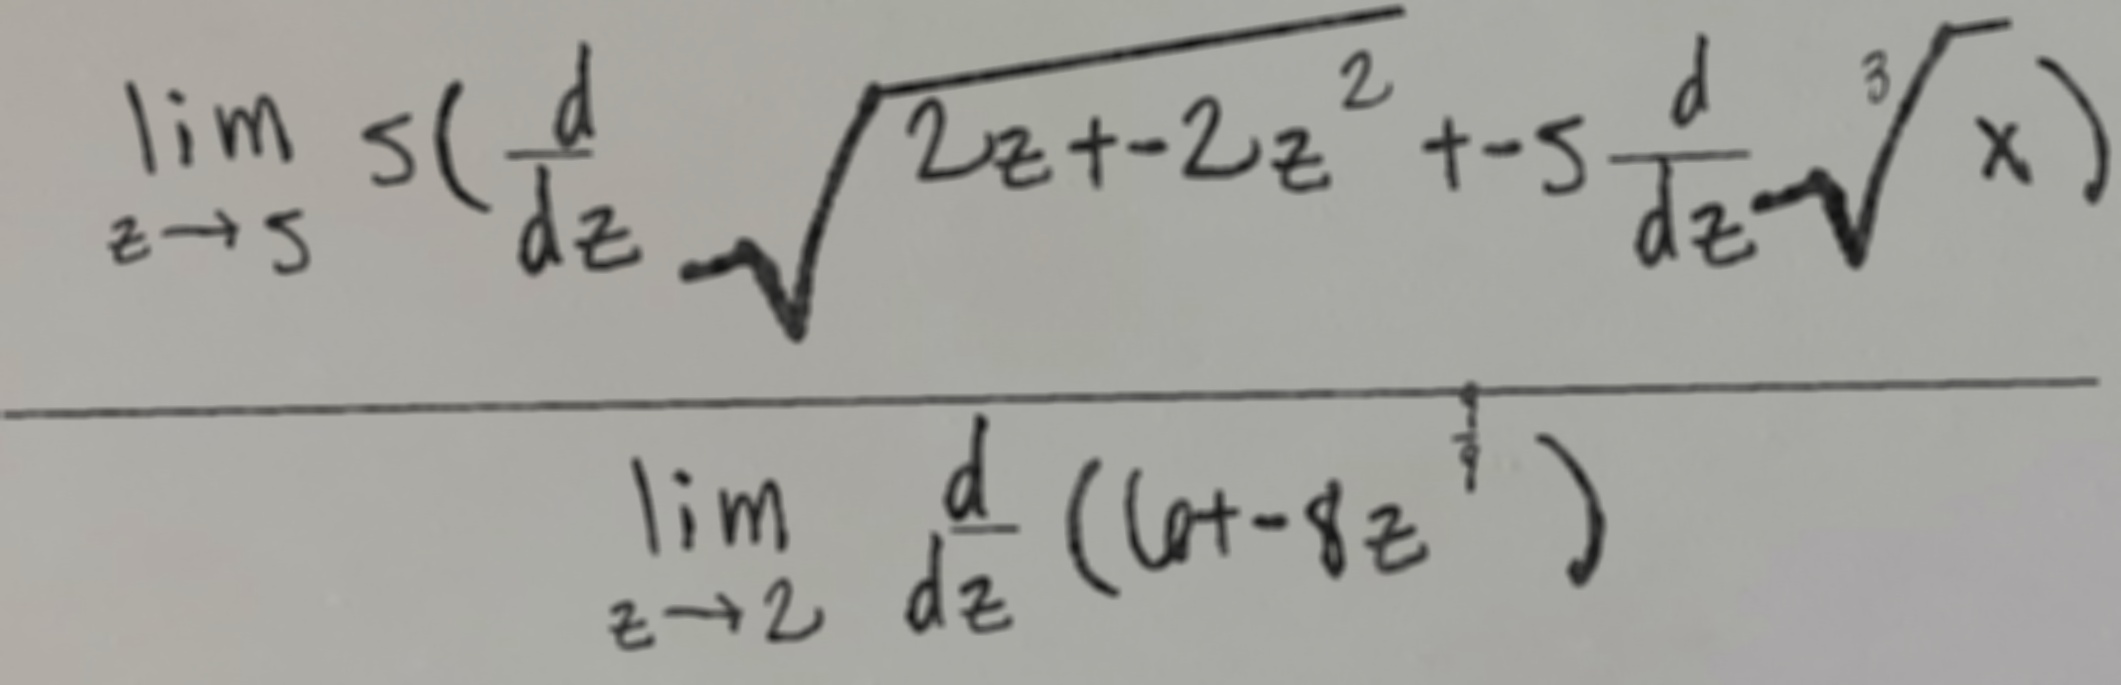 lim z→5 5(d/dz √(2z+-2z²) +-5 d/dz ∛x)
lim z→2 d/dz (6+-8z^(9/9))